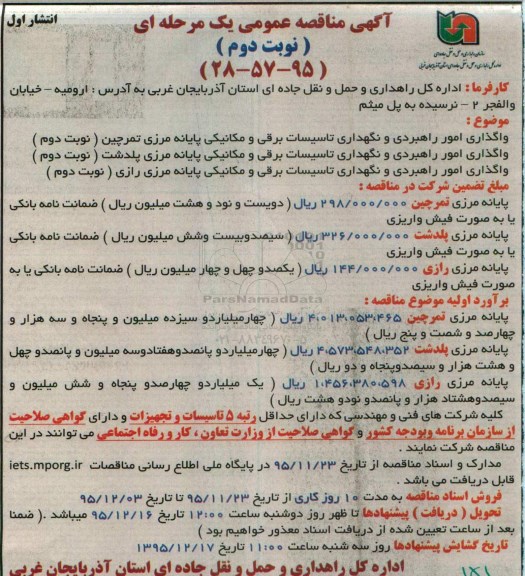 انتشار اول
آگهی مناقصه عمومی یک مرحله ای
( نوبت دوم )
( ۹۵-۵۷-۲۸ )
کارفرما : اداره کل راهداری و حمل و نقل جاده ای استان آذربایجان غربی به آدرس : ارومیه - خیابان
والفجر ۲ - نرسیده به پل میثم
موضوع :
واگذاری امور راهبردی و نگهداری تاسیسات برقی و مکانیکی پایانه مرزی تمرچین ( نوبت دوم )
واگذاری امور راهبردی و نگهداری تاسیسات برقی و مکانیکی پایانه مرزی پلدشت ( نوبت دوم )
واگذاری امور راهبردی و نگهداری تاسیسات برقی و مکانیکی پایانه مرزی رازی ( نوبت دوم )
مبلغ تضمین شرکت در مناقصه :
پایانه مرزی تمرچین ۲۹۸/۰۰۰/۰۰۰ ریال ( دویست و نود و هشت میلیون ریال ) ضمانت نامه بانکی
یا به صورت فیش واریزی
پایانه مرزی پلدشت ۳۲۶/۰۰۰/۰۰۰ ریال ( سیصدوبیست وشش میلیون ریال ) ضمانت نامه بانکی
یا به صورت فیش واریزی
پایانه مرزی رازی ۱۴۴/۰۰۰/۰۰۰ ریال ( یکصدو چهل و چهار میلیون ریال ) ضمانت نامه بانکی یا به
صورت فیش واریزی
برآورد اولیه موضوع مناقصه :
پایانه مرزی تمرچین ۴،۰۱۳،۰۵۳،۴۶۵ ریال ( چهارمیلیاردو سیزده میلیون و پنجاه و سه هزار و
چهارصد و شصت و پنج ریال )
پایانه مرزی پلدشت ۴،۵۷۳،۵۴۸،۳۵۲ ریال ( چهارمیلیاردو پانصدوهفتادوسه میلیون و پانصدو چهل
و هشت هزار و سیصدوپنجاه و دو ریال )
پایانه مرزی رازی ۱،۴۵۶،۳۸۰،۵۹۸ ریال ( یک میلیاردو چهارصدو پنجاه و شش میلیون و
سیصدوهشتاد هزار و پانصدو نودو هشت ریال )
کلیه شرکت های فنی و مهندسی که دارای حداقل رتبه ۵ تاسیسات و تجهیزات و دارای گواهی صلاحیت
از سازمان برنامه وبودجه کشور و گواهی صلاحیت از وزارت تعاون ، کار و رفاه اجتماعی می توانند در این
مناقصه شرکت نمایند .
مدارک و اسناد مناقصه از تاریخ ۹۵/۱۱/۲۳ در پایگاه ملی اطلاع رسانی مناقصات iets.mporg.ir
قابل دریافت می باشد .
فروش اسناد مناقصه به مدت ۱۰ روز کاری از تاریخ ۹۵/۱۱/۲۳ تا تاریخ ۹۵/۱۲/۰۳
تحویل ( دریافت ) پیشنهادها تا ظهر روز دوشنبه ساعت ۱۲:۰۰ تاریخ ۹۵/۱۲/۱۶ میباشد .( ضمنا
بعد از ساعت تعیین شده از دریافت اسناد معذور خواهیم بود )
تاریخ گشایش پیشنهادها روز سه شنبه ساعت ۱۱:۰۰ تاریخ ۱۳۹۵/۱۲/۱۷
اداره کل راهداری و حمل و نقل جاده ای استان آذربایجان غربی
ParsNamadData